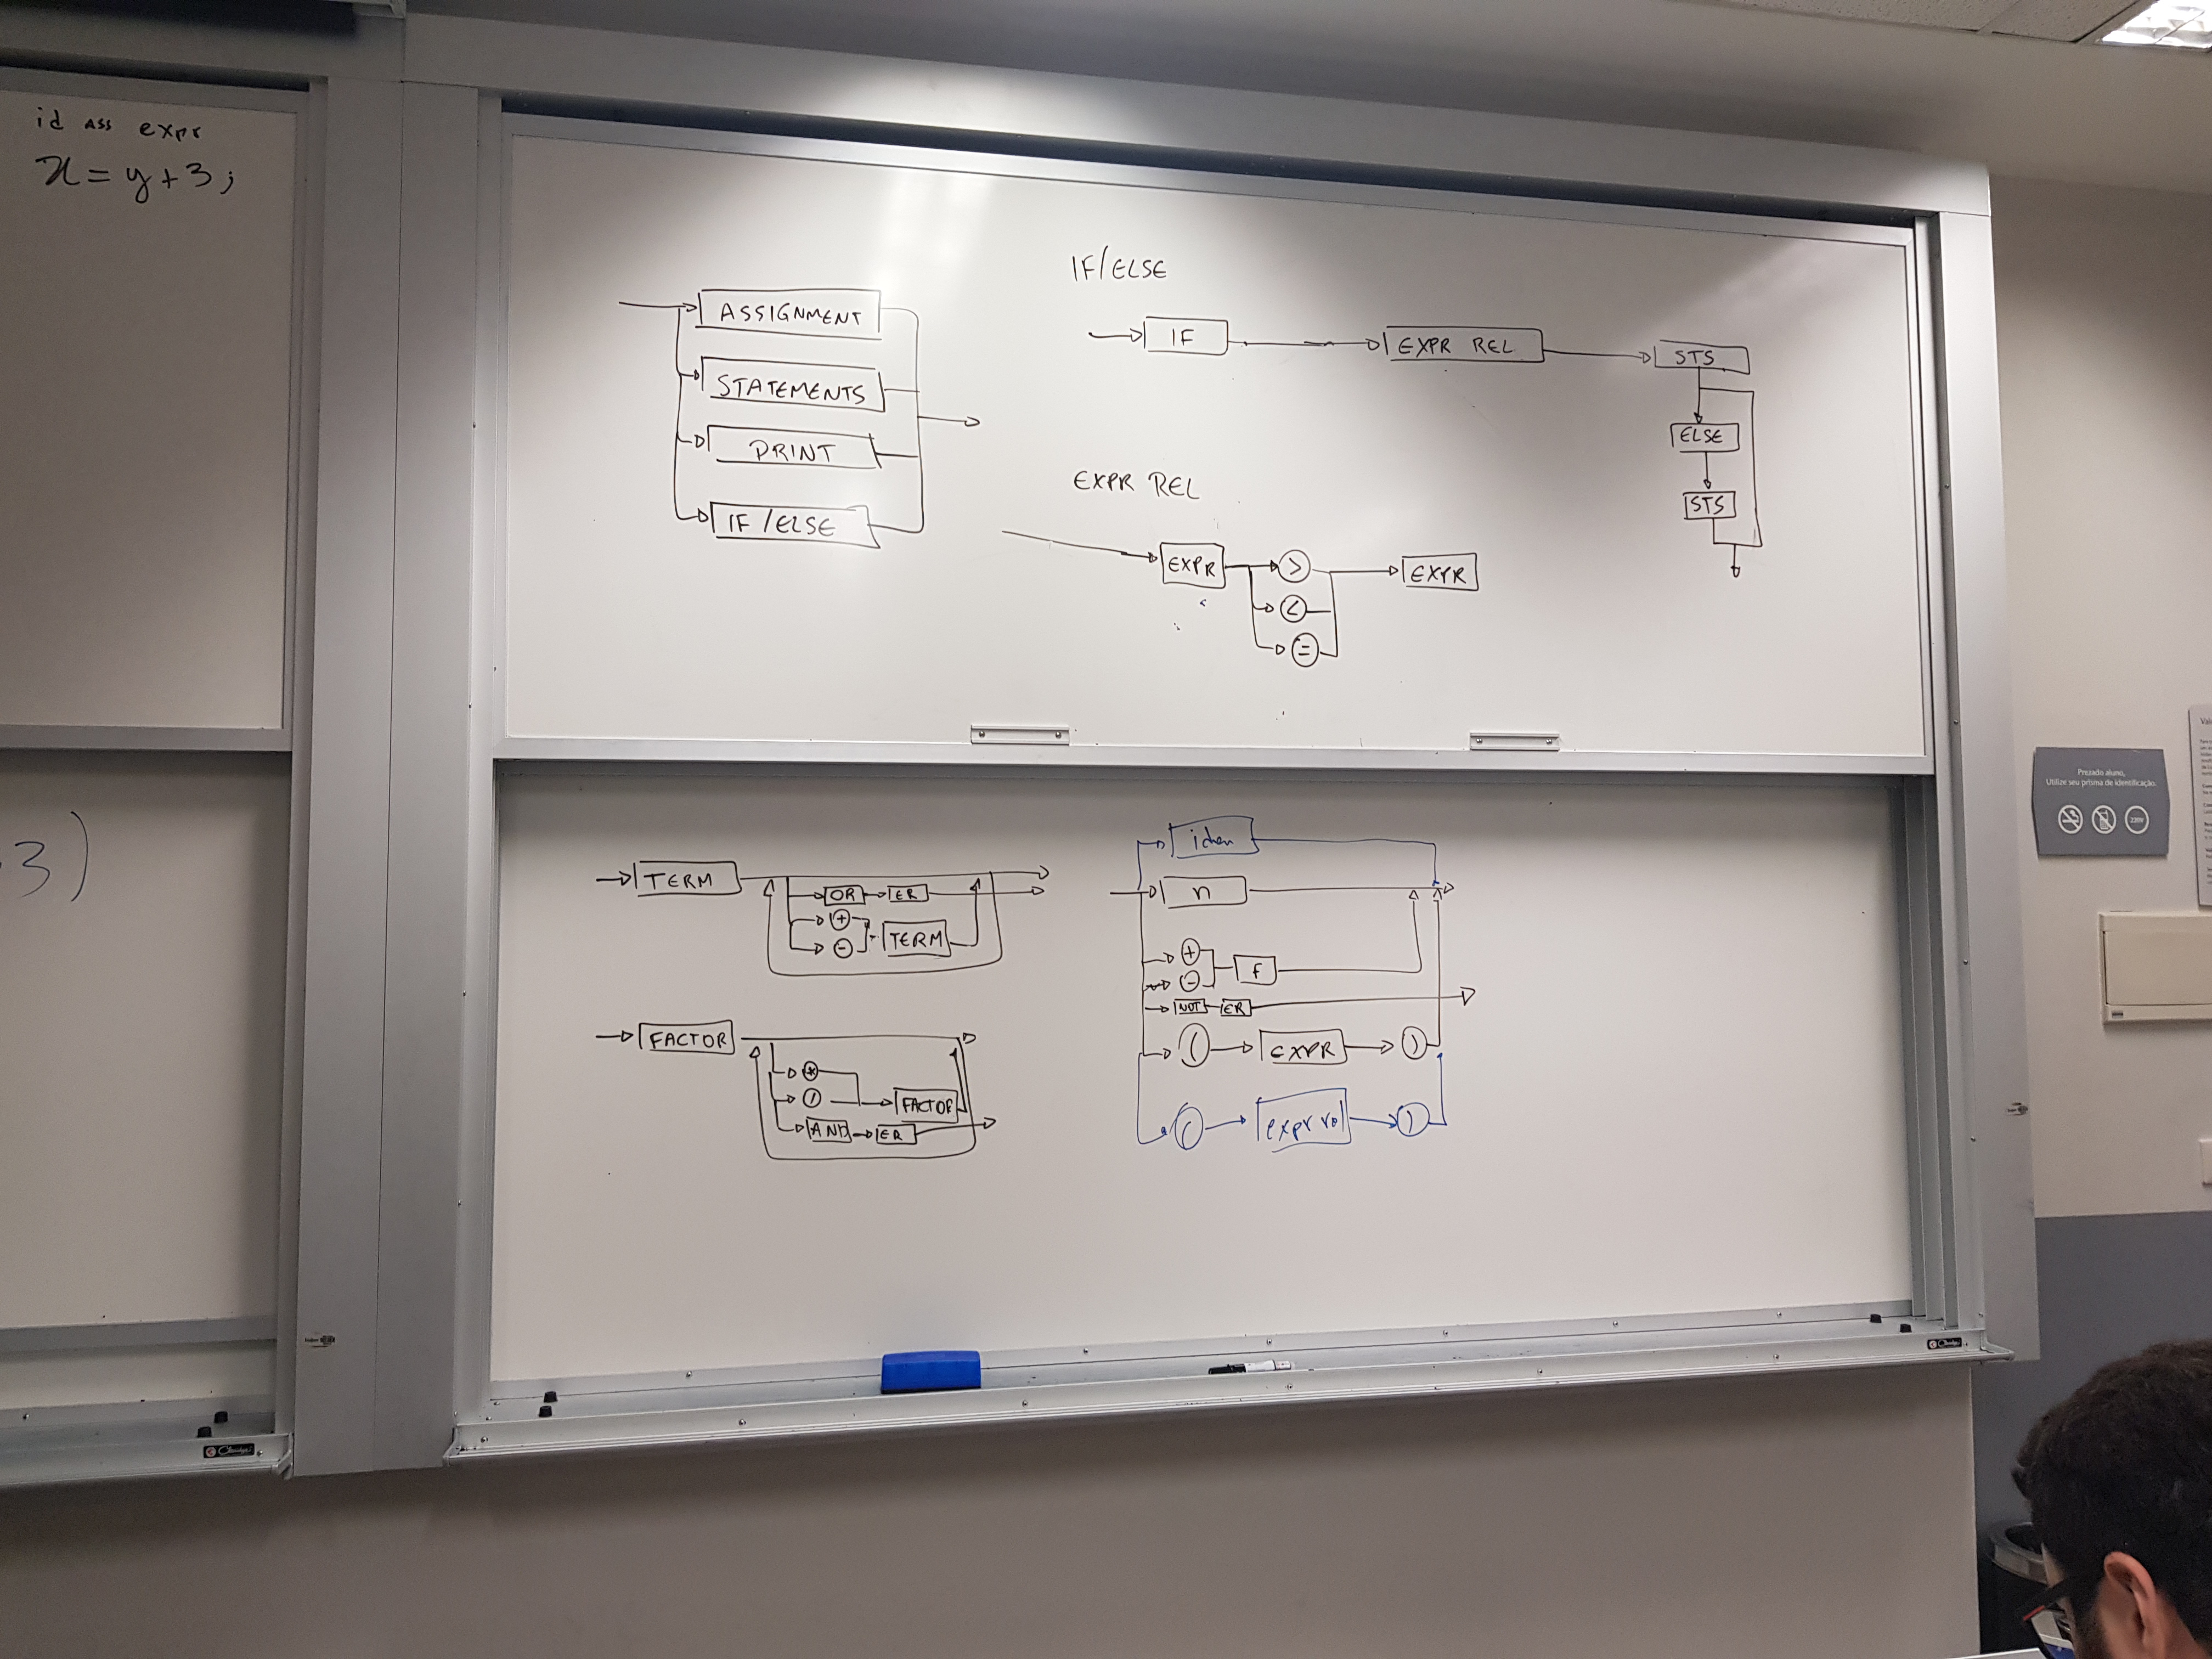 id ASS expr
x = y + 3 ;
3 )
ASSIGNMENT
STATEMENTS
PRINT
IF / ELSE
IF/ELSE
IF
EXPR REL
STS
ELSE
STS
EXPR REL
EXPR
>
<
=
EXPR
TERM
OR
ER
+
-
TERM
FACTOR
*
/
FACTOR
AND
ER
iden
n
+
-
f
NOT
ER
(
EXPR
)
(
expr rel
)
Prezado aluno,
Utilize seu prisma de identificação.
220V